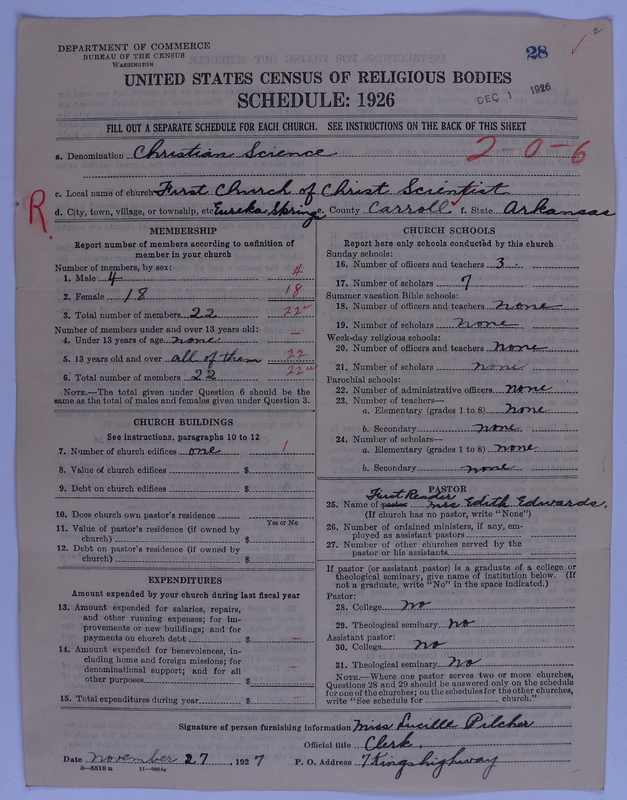 DEPARTMENT OF COMMERCE
BUREAU OF THE CENSUS
WASHINGTON
28
2
UNITED STATES CENSUS OF RELIGIOUS BODIES
SCHEDULE: 1926
DEC 1 1926
FILL OUT A SEPARATE SCHEDULE FOR EACH CHURCH. SEE INSTRUCTIONS ON THE BACK OF THIS SHEET
a. Denomination Christian Science
2-0-6
c. Local name of church First Church of Christ Scientist
R.
d. City, town, village, or township, etc Eureka Springs e. County Carroll f. State Arkansas
MEMBERSHIP
Report number of members according to definition of
member in your church
Number of members, by sex:
1. Male 4 4
2. Female 18 18
3. Total number of members 22 22
Number of members under and over 13 years old:
4. Under 13 years of age none –
5. 13 years old and over all of them 22
6. Total number of members 22 22
NOTE.—The total given under Question 6 should be
same as the total of males and females given under Question 3.
CHURCH BUILDINGS
See instructions, paragraphs 10 to 12
7. Number of church edifices one 1
8. Value of church edifices $
9. Debt on church edifices $
10. Does church own pastor's residence
Yes or No
11. Value of pastor's residence (if owned by
church) $
12. Debt on pastor's residence (if owned by
church) $
EXPENDITURES
Amount expended by your church during last fiscal year
13. Amount expended for salaries, repairs,
and other running expenses; for im-
provements or new buildings; and for
payments on church debt $ –
14. Amount expended for benevolences, in-
cluding home and foreign missions; for
denominational support; and for all
other purposes $ –
15. Total expenditures during year $ –
CHURCH SCHOOLS
Report here only schools conducted by this church
Sunday schools:
16. Number of officers and teachers 3
17. Number of scholars 7
Summer vacation Bible schools:
18. Number of officers and teachers none
19. Number of scholars none
Week-day religious schools:
20. Number of officers and teachers none
21. Number of scholars none
Parochial schools:
22. Number of administrative officers none
23. Number of teachers—
a. Elementary (grades 1 to 8) none
b. Secondary none
24. Number of scholars—
a. Elementary (grades 1 to 8) none
b. Secondary none
PASTOR
First Reader
25. Name of pastor Mrs Edith Edwards.
(If church has no pastor, write "None")
26. Number of ordained ministers, if any, em-
ployed as assistant pastors
27. Number of other churches served by the
pastor or his assistants
If pastor (or assistant pastor) is a graduate of a college or
theological seminary, give name of institution below. (If
not a graduate, write "No" in the space indicated.)
Pastor:
28. College no
29. Theological seminary no
Assistant pastor:
30. College no
31. Theological seminary no
NOTE.—Where one pastor serves two or more churches,
Questions 28 and 29 should be answered only on the schedule
for one of the churches; on the schedules for the other churches,
write "See schedule for church."
Signature of person furnishing information Miss Lucille Pilcher
Official title Clerk
Date November 27, 1927 P. O. Address 7 Kingshighway
8—5518 a